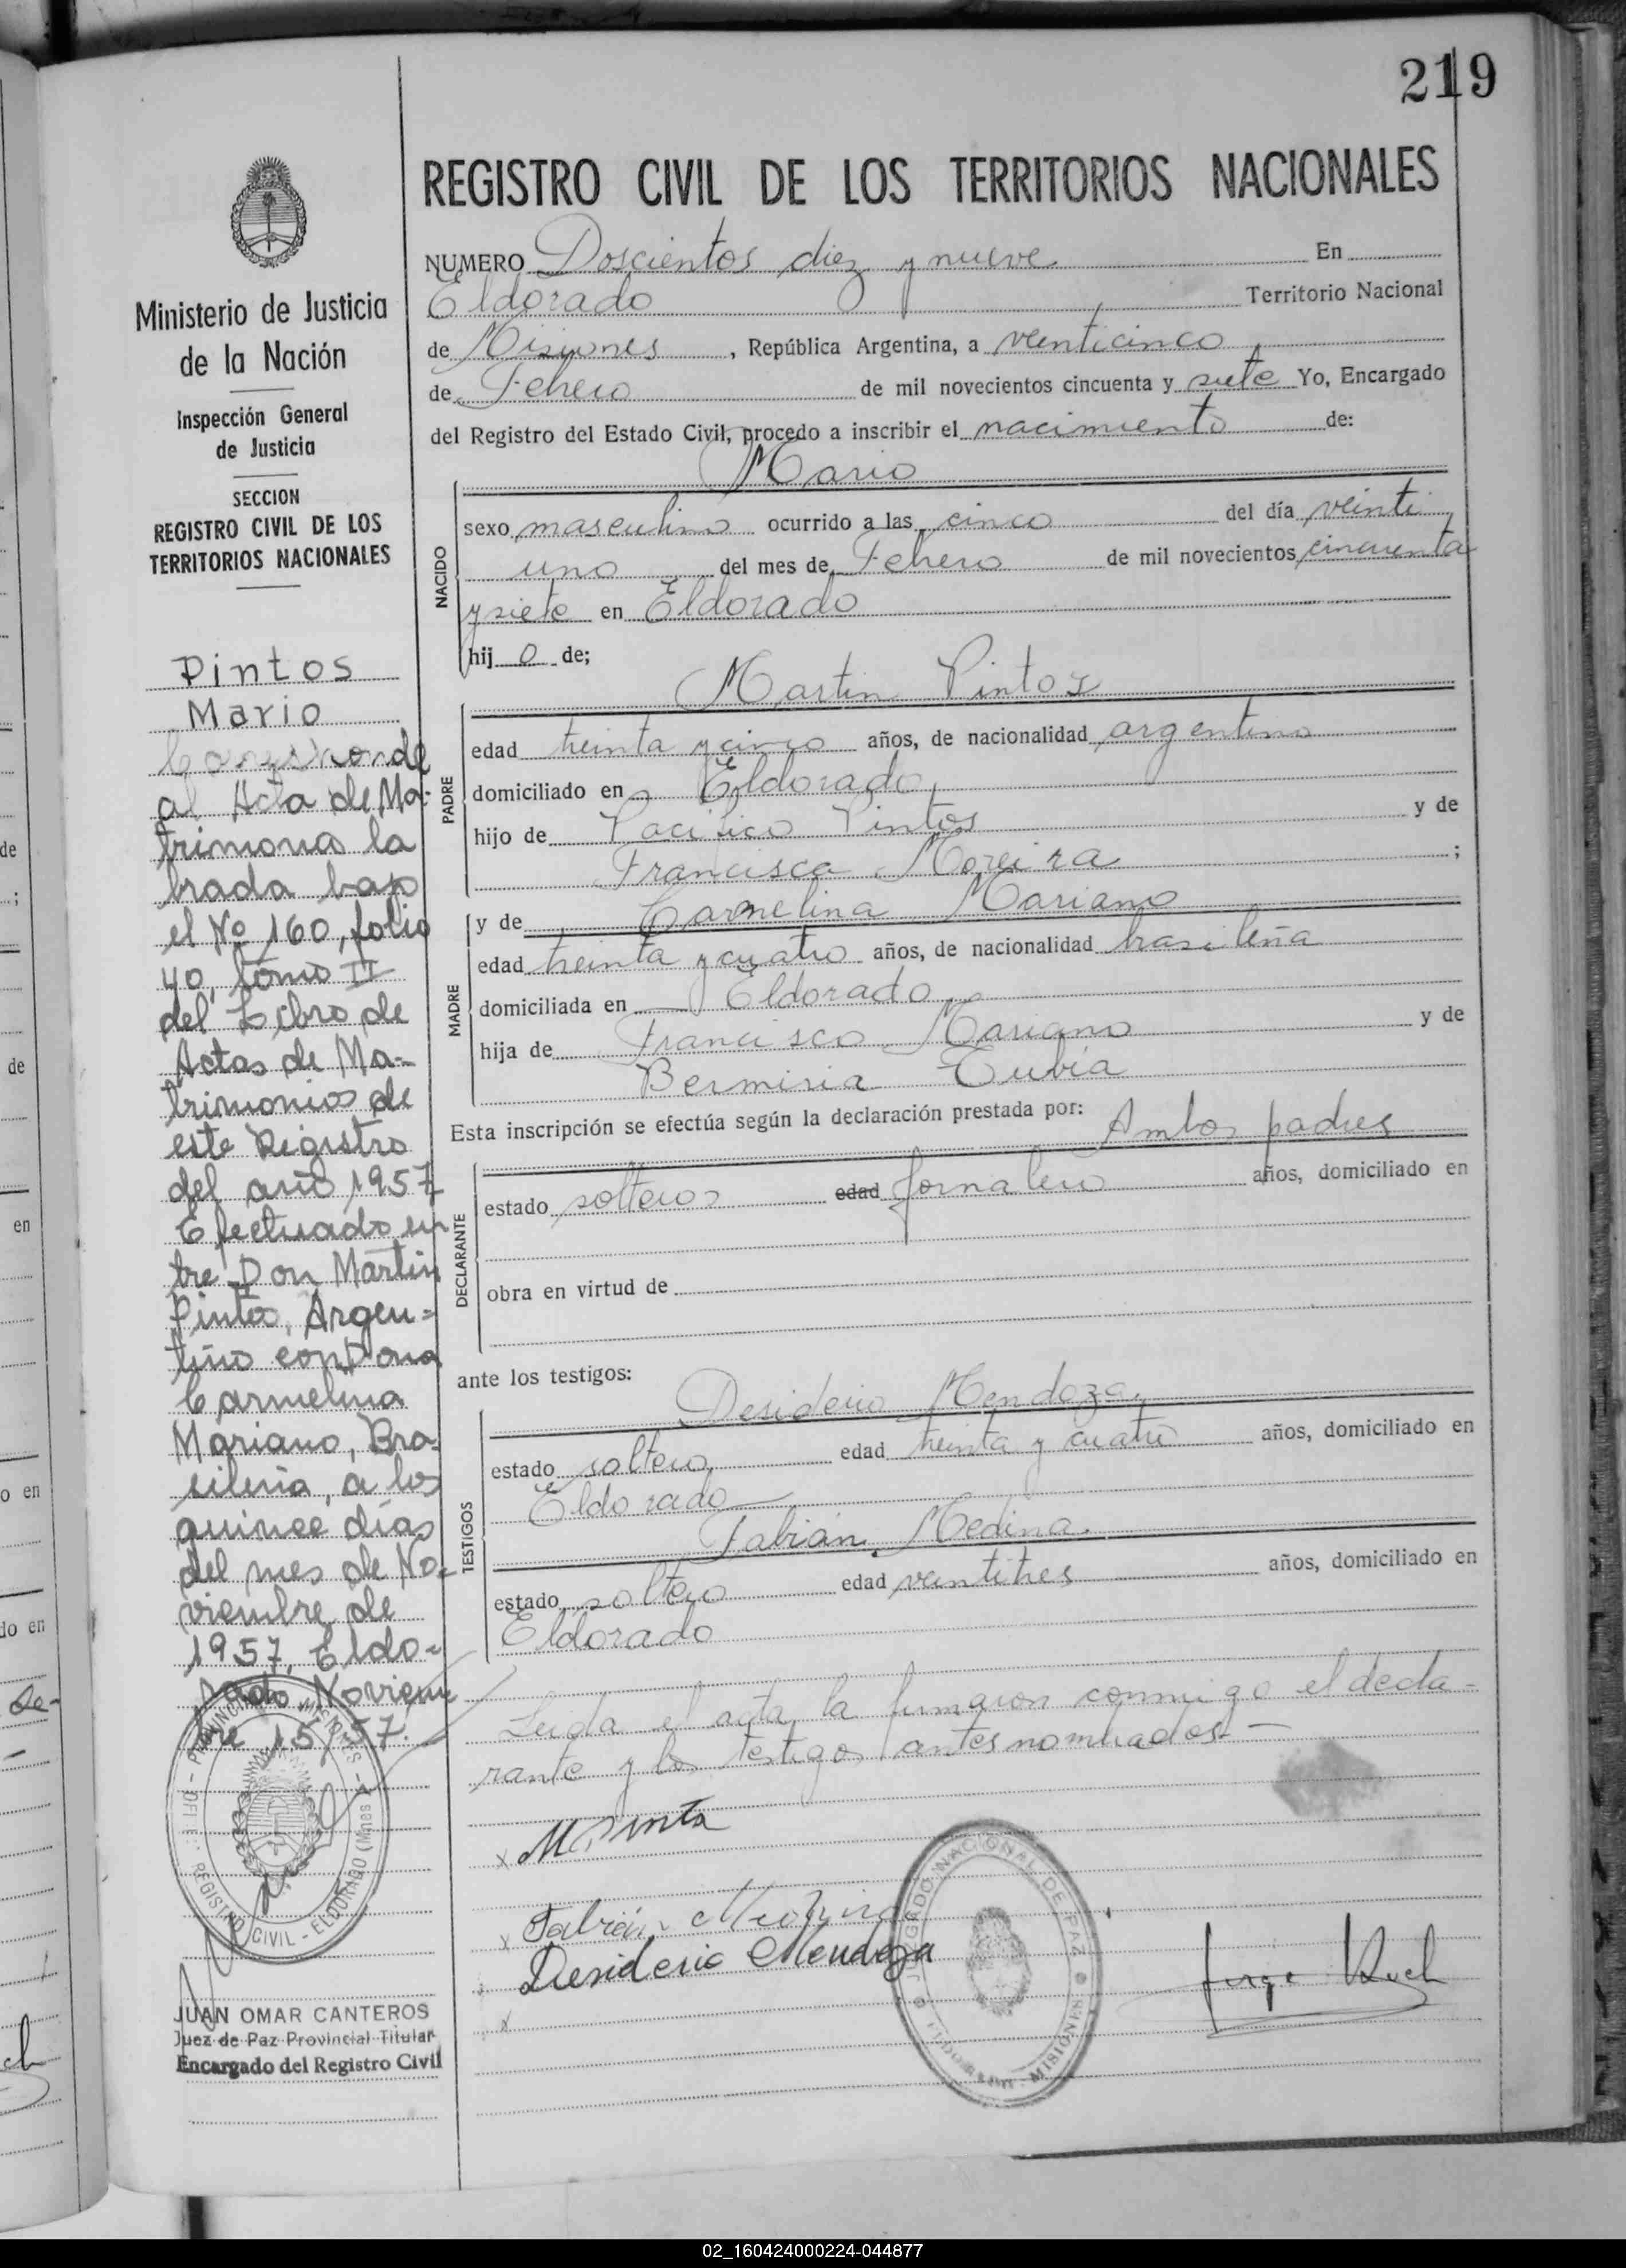 219
REGISTRO CIVIL DE LOS TERRITORIOS NACIONALES
NUMERO Doscientos diez y nueve En
Eldorado Territorio Nacional
de Misiones , República Argentina, a veinticinco
de Febrero de mil novecientos cincuenta y siete Yo, Encargado
del Registro del Estado Civil, procedo a inscribir el nacimiento de:
Mario
NACIDO
sexo masculino ocurrido a las cinco del día veinti
uno del mes de Febrero de mil novecientos cincuenta
y siete en Eldorado
hij o de;
Martin Pintos
PADRE
edad treinta y cinco años, de nacionalidad argentino
domiciliado en Eldorado
hijo de Pacifico Pintos y de
Francisca Moreira ;
MADRE
y de Carmelina Mariano
edad treinta y cuatro años, de nacionalidad brasileña
domiciliada en Eldorado
hija de Francisco Mariano y de
Bermiria Tubia
Esta inscripción se efectúa según la declaración prestada por: Ambos padres
DECLARANTE
estado solteros edad jornalero años, domiciliado en
obra en virtud de
ante los testigos:
TESTIGOS
Desiderio Mendoza
estado soltero edad treinta y cuatro años, domiciliado en
Eldorado
Fabián Medina
estado soltero edad veintitres años, domiciliado en
Eldorado
Leida el acta, la firmaron conmigo el decla-
rante y los testigos antes nombrados
x M Pinto
x Fabián Medina
Desiderio Mendoza
x
JUZGADO NACIONAL DE PAZ
ELDORADO - MISIONES
Ministerio de Justicia
de la Nación
Inspección General
de Justicia
SECCION
REGISTRO CIVIL DE LOS
TERRITORIOS NACIONALES
Pintos
Mario
Corresponde
al Acta de Ma-
trimonio la
brada bajo
el Nº 160, folio
40, tomo II
del Libro de
Actas de Ma-
trimonios de
este Registro
del año 1957
Efectuado en
tre Don Martin
Pintos, Argen=
tino con Dona
Carmelina
Mariano, Bra-
sileria, a los
quince días
del mes de No-
viembre de
1957. Eldo-
rado Noviem
bre 15/57.
PROVINCIA MISIONES
REGISTRO CIVIL - ELDORADO (Mnes)
JUAN OMAR CANTEROS
Juez de Paz Provincial Titular
Encargado del Registro Civil
de
de
en
o en
do en
de-
02_160424000224-044877